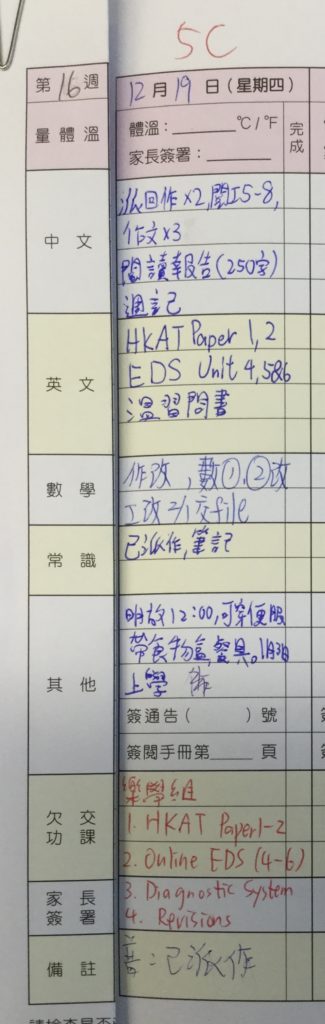 5C
第16週
12月19日(星期四)
量體溫
體溫:______℃/℉
家長簽署:______
完成
中文
派回作x2,閱工5-8,
作文x3
閱讀報告(250字)
週記
英文
HKAT Paper 1, 2
EDS Unit 4,5&6
溫習問書
數學
作改,數①,②改
工改2/1交file
常識
已派作,筆記
其他
明放12:00,可穿便服
帶食物盒,餐具。1月3日
上學
簽通告(  )號
簽閱手冊第____頁
欠交功課
樂學組
1. HKAT Paper1-2
2. Online EDS (4-6)
家長簽署
3. Diagnostic System
4. Revisions
備註
:已派作